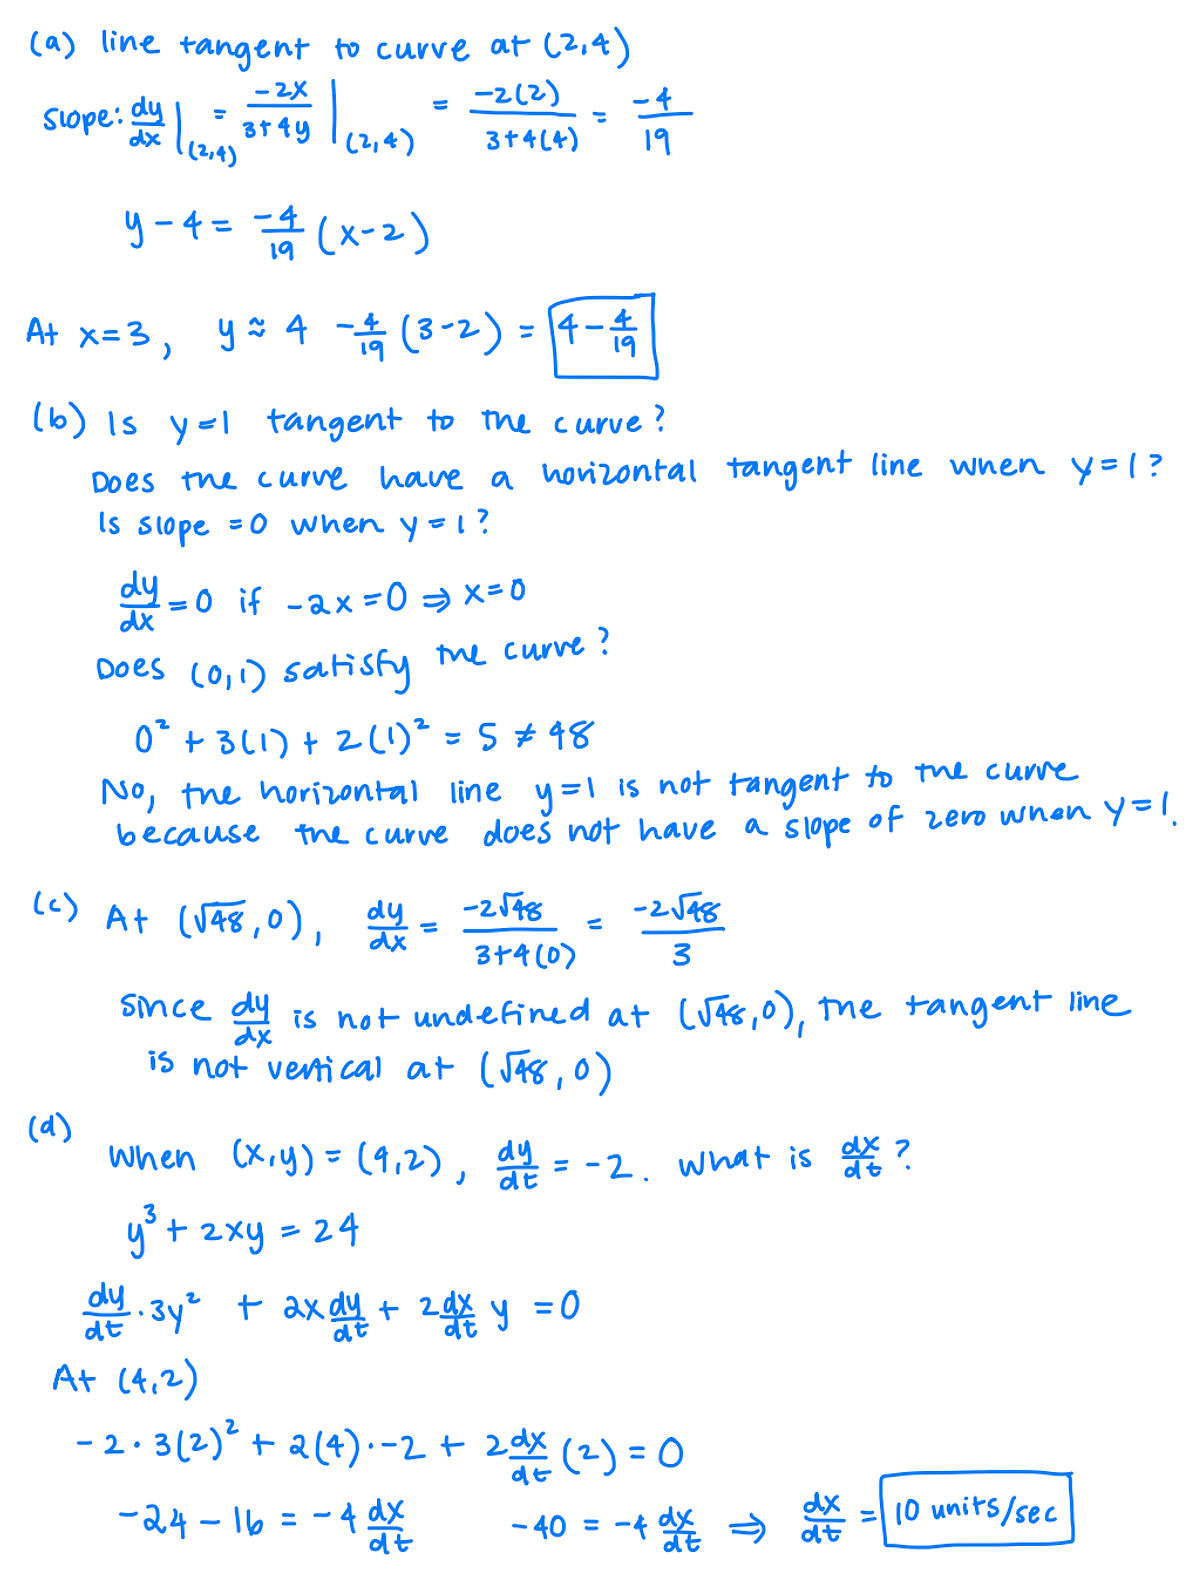 (a) line tangent to curve at (2,4)
slope: dy/dx |(2,4) = -2x/3+4y |(2,4) = -2(2)/3+4(4) = -4/19
y - 4 = -4/19 (x-2)
At x=3, y ≈ 4 - 4/19 (3-2) = 4 - 4/19
(b) Is y=1 tangent to the curve?
Does the curve have a horizontal tangent line when y=1?
Is slope =0 when y=1?
dy/dx = 0 if -2x=0 ⇒ x=0
Does (0,1) satisfy the curve?
0² + 3(1) + 2(1)² = 5 ≠ 48
No, the horizontal line y=1 is not tangent to the curve
because the curve does not have a slope of zero when y=1.
(c) At (√48, 0), dy/dx = -2√48/3+4(0) = -2√48/3
Since dy/dx is not undefined at (√48,0), the tangent line
is not vertical at (√48, 0)
(d)
When (x,y) = (4,2), dy/dt = -2. What is dx/dt?
y³ + 2xy = 24
dy/dt · 3y² + 2x dy/dt + 2 dx/dt y = 0
At (4,2)
-2 · 3(2)² + 2(4)·-2 + 2 dx/dt (2) = 0
-24 - 16 = -4 dx/dt -40 = -4 dx/dt ⇒ dx/dt = 10 units/sec